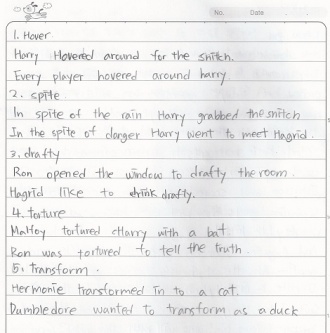 No. Date
1. Hover
Harry Hovered around for the snitch.
Every player hovered around harry.
2. spite
In spite of the rain Harry grabbed the snitch
In the spite of danger Harry went to meet Hagrid.
3. drafty
Ron opened the window to drafty the room.
Hagrid like to drink drafty.
4. torture
Malfoy tortured Harry with a bat.
Ron was tortured to tell the truth.
5. transform.
Hermonie transformed in to a cat.
Dumbledore wanted to transform as a duck